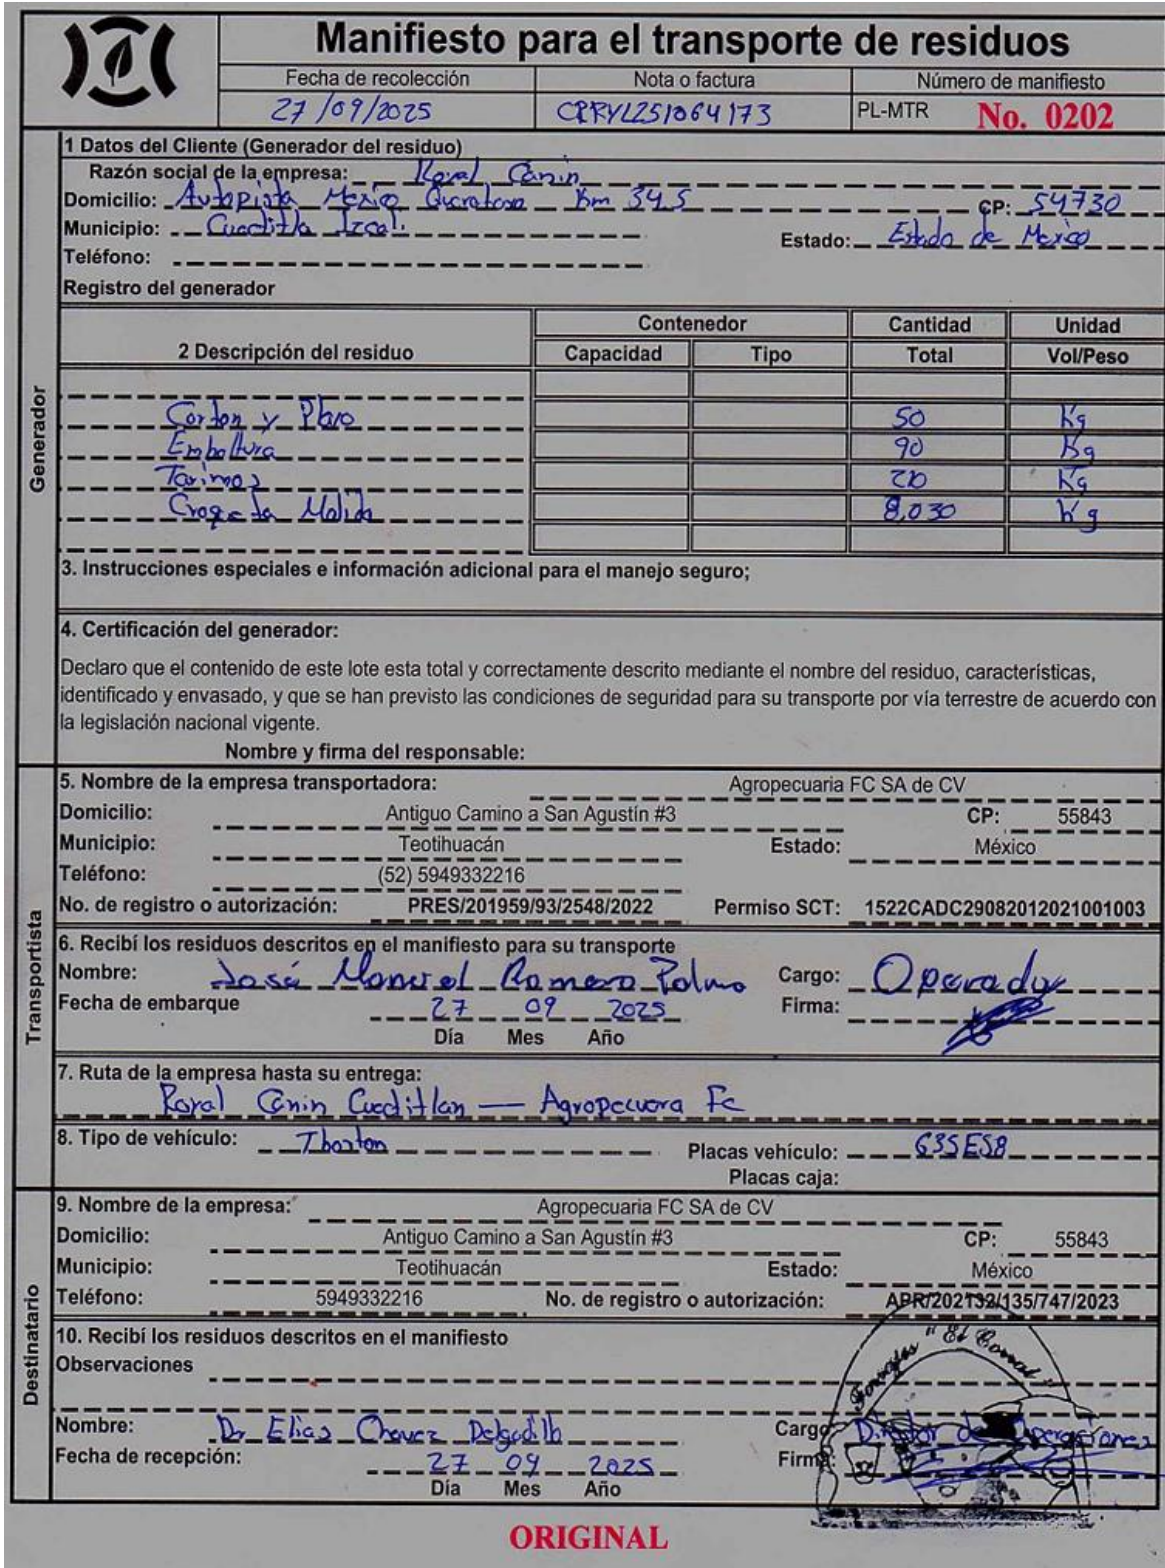 Manifiesto para el transporte de residuos
Fecha de recolección Nota o factura Número de manifiesto
27/09/2025 CPRYL251064173 PL-MTR No. 0202
1 Datos del Cliente (Generador del residuo)
Razón social de la empresa: Royal Canin
Domicilio: Autopista Mexico Queretaro Km 34.5 CP: 54730
Municipio: Cuautitla Izcal. Estado: Estado de Mexico
Teléfono:
Registro del generador
Contenedor Cantidad Unidad
2 Descripción del residuo Capacidad Tipo Total Vol/Peso
Carton y 50 Kg
90 Kg
Tarimas Kg
Croqueta Molida 8,030 Kg
Generador
3. Instrucciones especiales e información adicional para el manejo seguro;
4. Certificación del generador:
Declaro que el contenido de este lote esta total y correctamente descrito mediante el nombre del residuo, características,
identificado y envasado, y que se han previsto las condiciones de seguridad para su transporte por vía terrestre de acuerdo con
la legislación nacional vigente.
Nombre y firma del responsable:
5. Nombre de la empresa transportadora: Agropecuaria FC SA de CV
Domicilio: Antiguo Camino a San Agustín #3 CP: 55843
Municipio: Teotihuacán Estado: México
Teléfono: (52) 5949332216
No. de registro o autorización: PRES/201959/93/2548/2022 Permiso SCT: 1522CADC29082012021001003
Transportista
6. Recibí los residuos descritos en el manifiesto para su transporte
Nombre: José Manuel Romero Palma Cargo: Operador
Fecha de embarque 27 09 2025 Firma:
Día Mes Año
7. Ruta de la empresa hasta su entrega:
Royal Canin Cuautitlan — Agropecuaria Fc
8. Tipo de vehículo: Thorton Placas vehículo: 635ES8
Placas caja:
9. Nombre de la empresa: Agropecuaria FC SA de CV
Domicilio: Antiguo Camino a San Agustín #3 CP: 55843
Municipio: Teotihuacán Estado: México
Teléfono: 5949332216 No. de registro o autorización: APR/202132/135/747/2023
Destinatario
10. Recibí los residuos descritos en el manifiesto
Observaciones
Forrajes "El Corral"
Nombre: Dr Elias Chavez Delgadillo Cargo Director de Operaciones
Fecha de recepción: 27 09 2025 Firma:
Día Mes Año
ORIGINAL